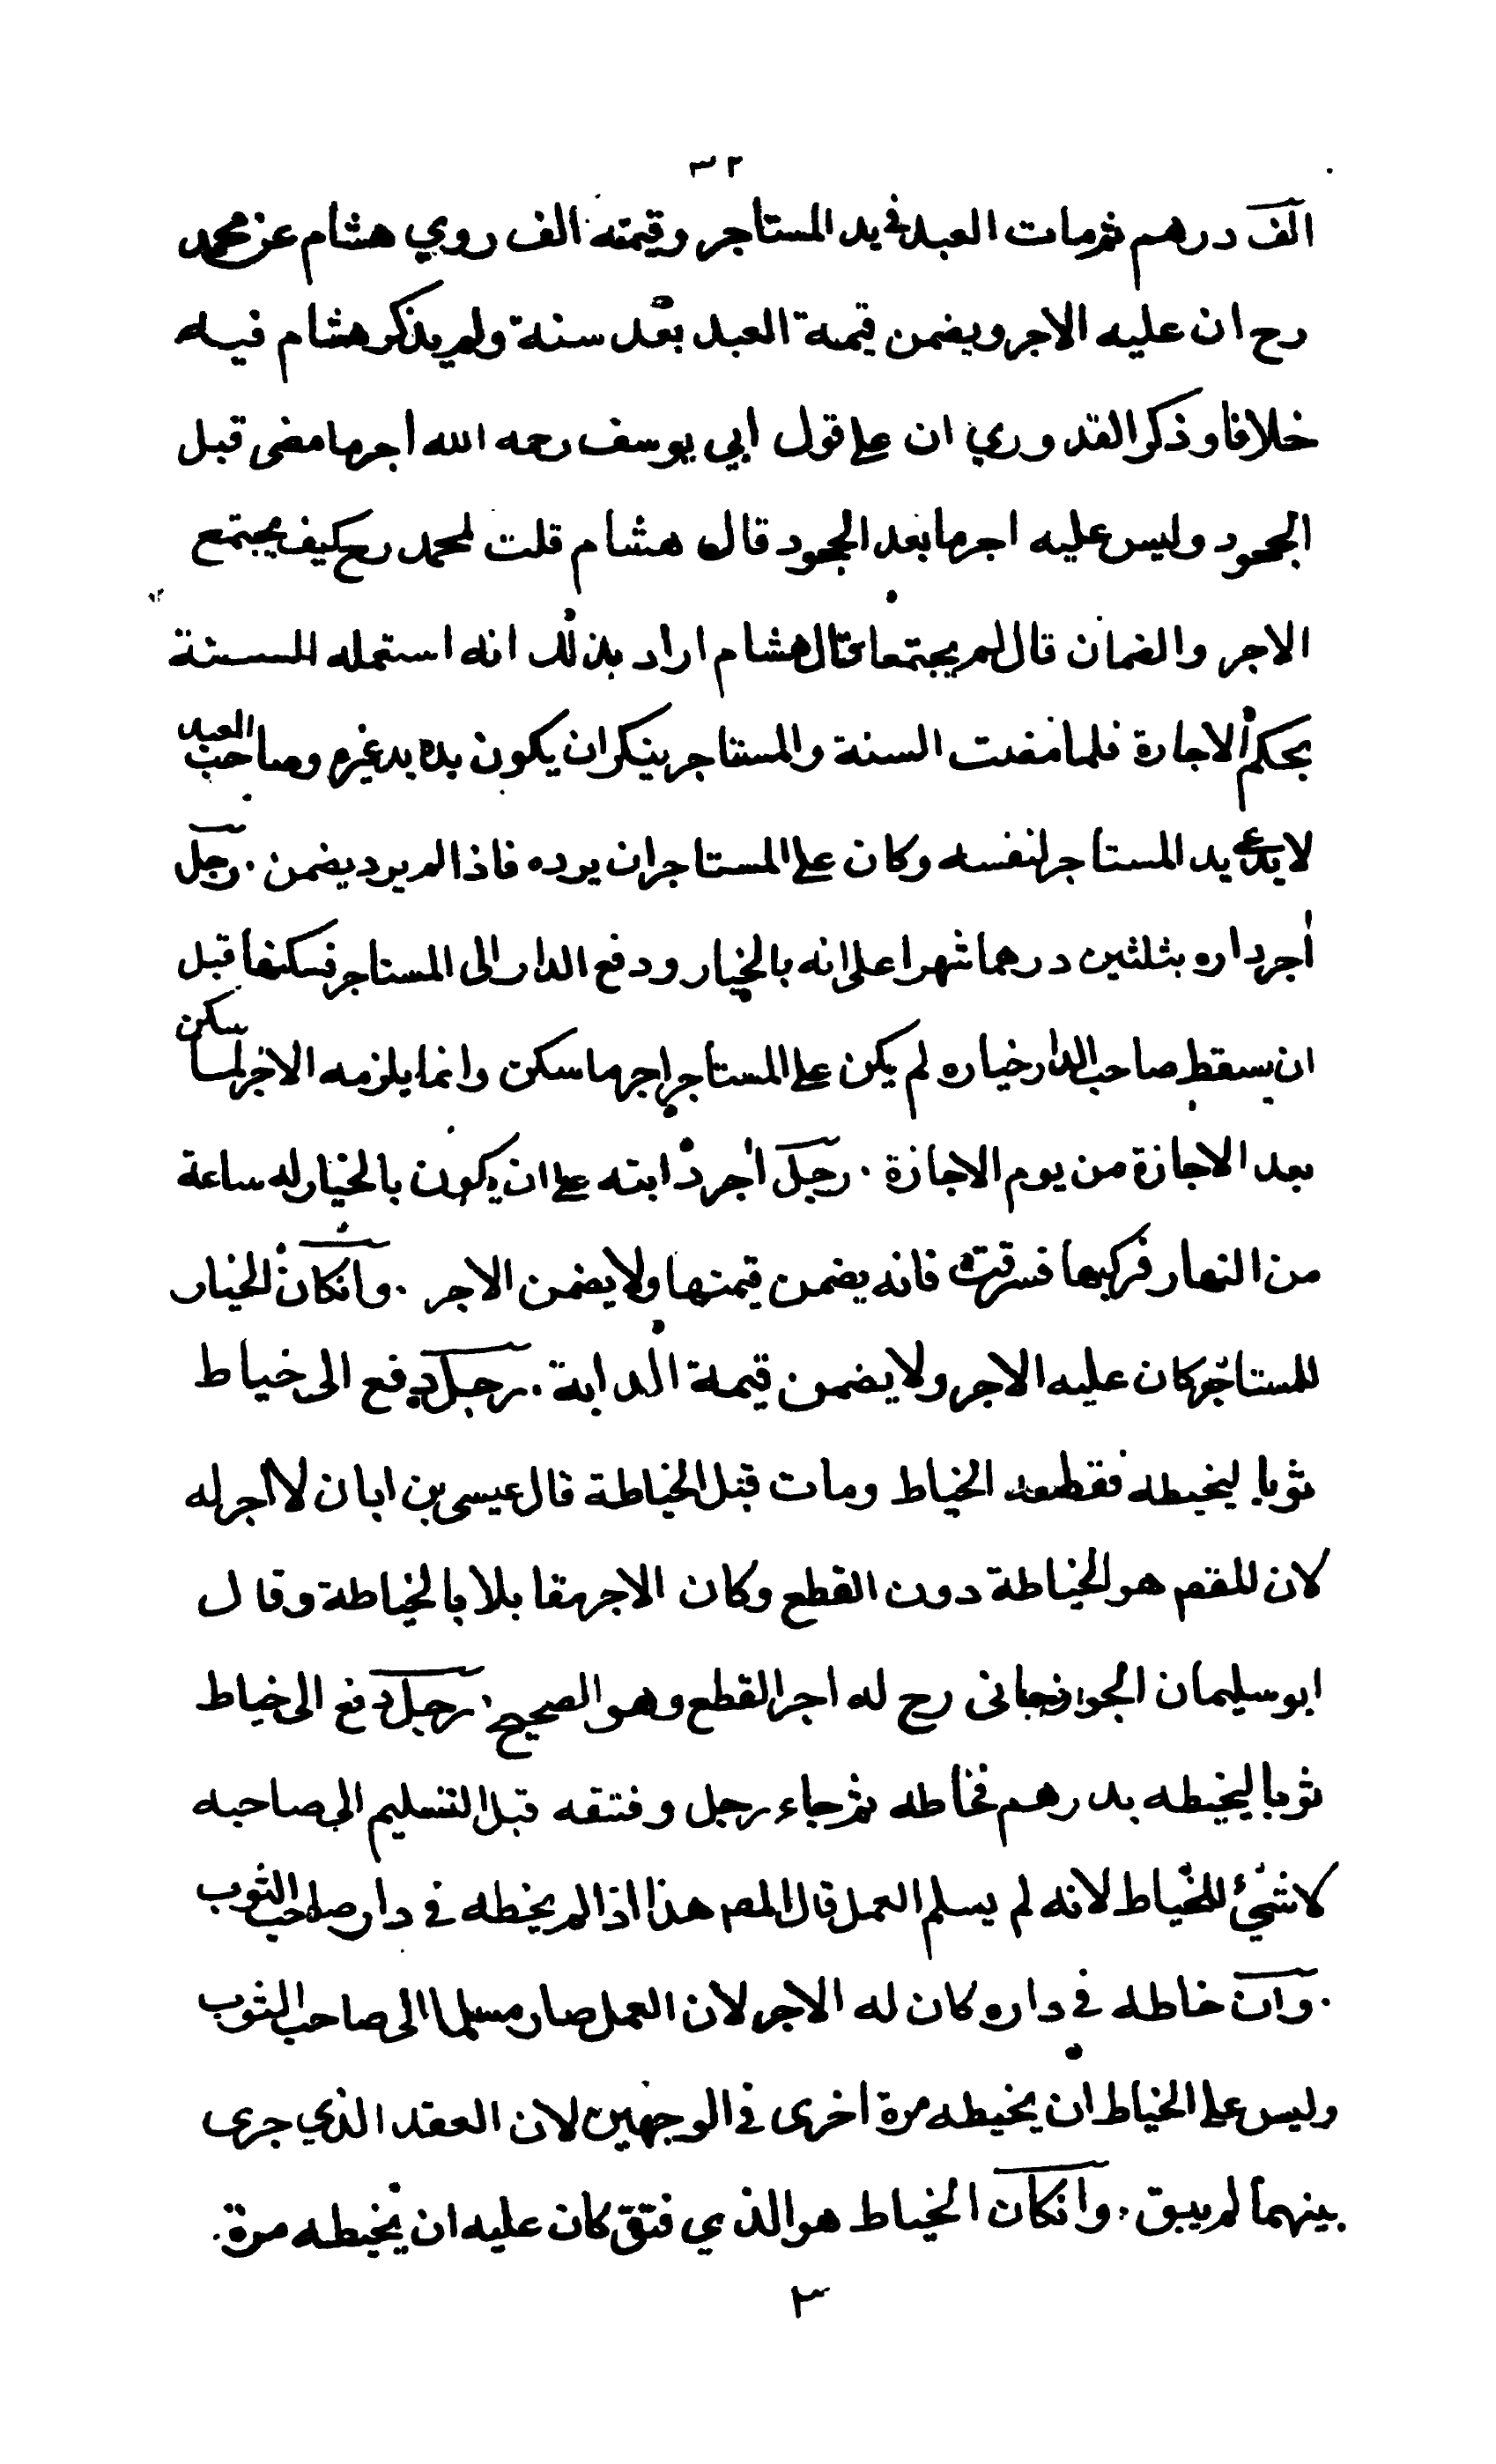 ٣٢
الف درهم ثم مات العبد في يد المستاجر وقيمته الف روي هشام عن محمد
رح ان عليه الاجر ويضمن قيمة العبد بعد سنة ولم يذكر هشام فيه
خلافا وذكر القدوري ان على قول ابي يوسف رحمه الله اجر ما مضى قبل
الجحود وليس عليه اجر ما بعد الجحود قال هشام قلت لمحمد رح كيف يجتمع
الاجر والضمان قال لم يجتمعا قال هشام اراد بذلك انه استعمله السنة
بحكم الاجارة فلما مضت السنة والمستاجر ينكر ان يكون يده يد غيره وصاحب العبد
لا يدعي يد المستاجر لنفسه وكان على المستاجر ان يرده فاذا لم يرد يضمن . رجل
آجر داره بثلثين درهما شهرا على انه بالخيار ودفع الدار الى المستاجر فسكنها قبل
ان يسقط صاحب الدار خياره لم يكن على المستاجر اجر ما سكن وانما يلزمه الاجر لما سكن
بعد الاجازة من يوم الاجازة . رجل آجر دابته على ان يكون بالخيار له ساعة
من النهار فركبها فسرقت فانه يضمن قيمتها ولا يضمن الاجر . وانكان الخيار
للمستاجر كان عليه الاجر ولا يضمن قيمة الدابة . رجل دفع الى خياط
ثوبا ليخيطه فقطعه الخياط ومات قبل الخياطة قال عيسى بن ابان لا اجر له
لان المقصـ هو الخياطة دون القطع وكان الاجر مقابلا بالخياطة وقال
ابو سليمان الجوزجاني رح له اجر القطع وهو الصحيح . رجل دفع الى خياط
ثوبا ليخيطه بدرهم فخاطه ثم جاء رجل وفتقه قبل التسليم الى صاحبه
لا شيئ للخياط لانه لم يسلم العمل قال المصـ هذا اذا لم يخطه في دار صاحب الثوب
. وان خاطه في داره كان له الاجر لان العمل صار مسلما الى صاحب الثوب
وليس على الخياط ان يخيطه مرة اخرى في الوجهين لان العقد الذي جرى
بينهما لم يبق . وانكان الخياط هو الذي فتق كان عليه ان يخيطه مرة .